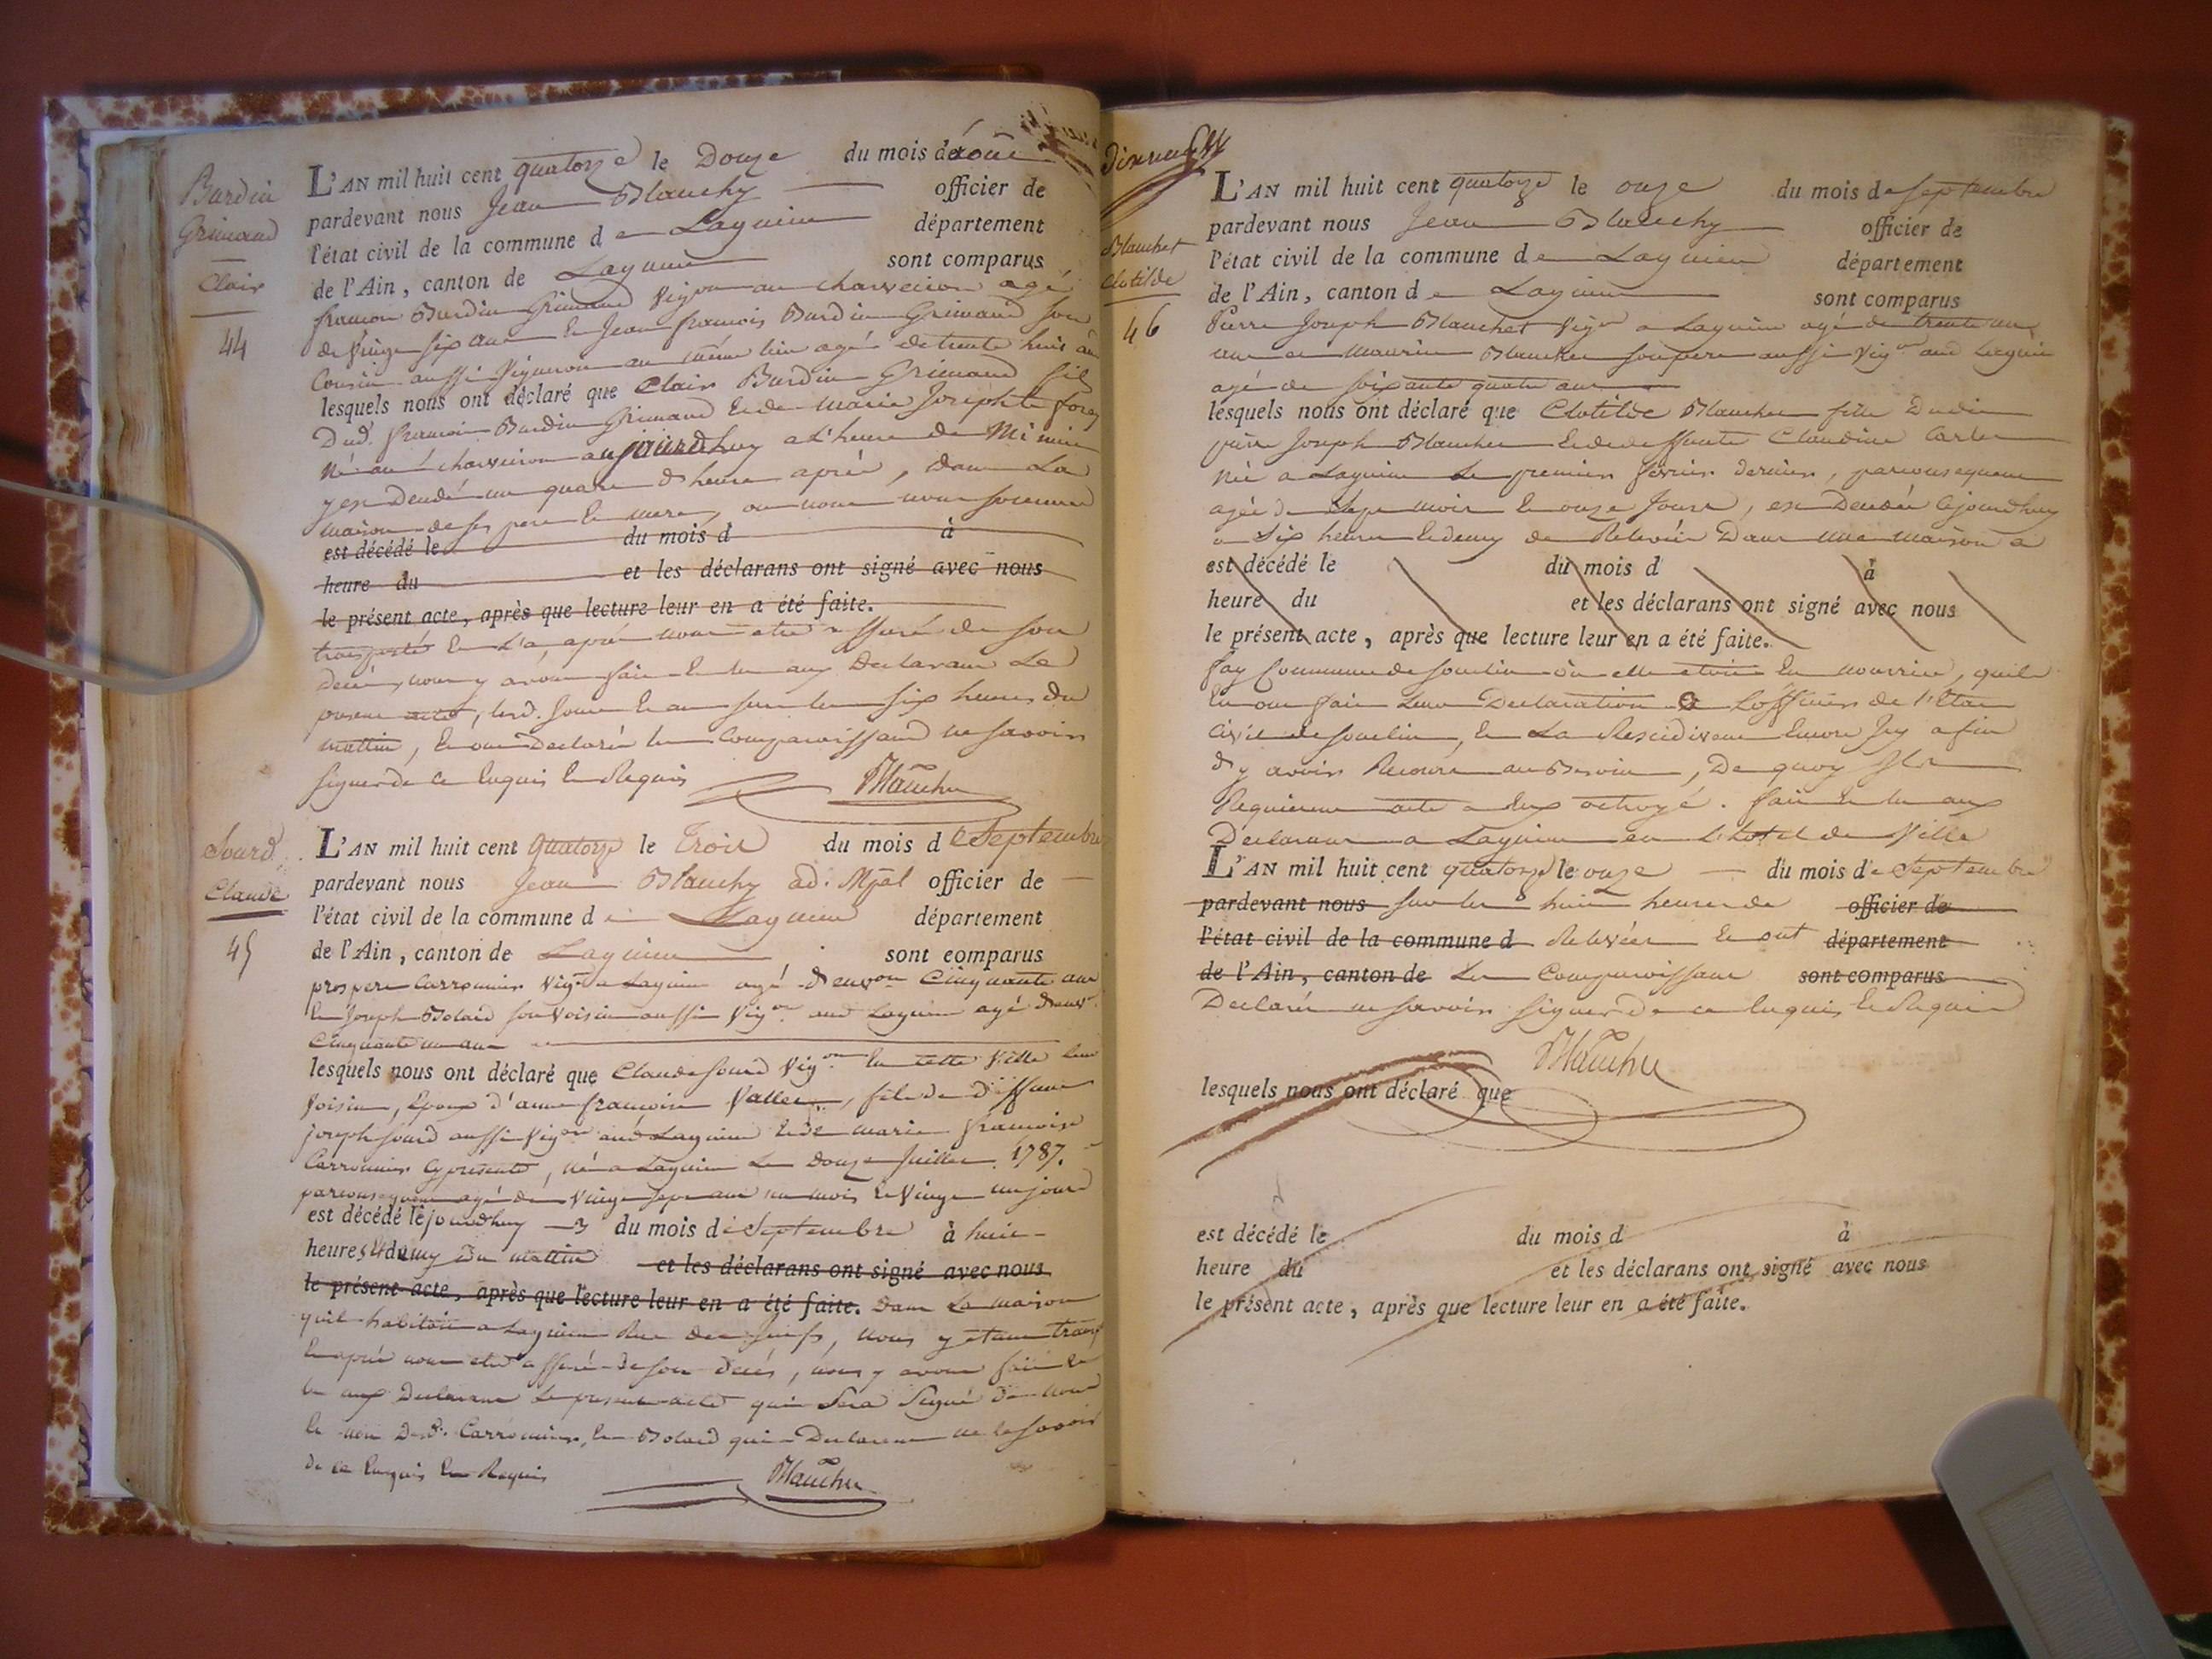 Burdin
Grimaud
Clair
44
L'AN mil huit cent quatorze le Douze du mois d'aout
pardevant nous Jean Blanchy officier de
l'état civil de la commune de Lagnieu département
de l'Ain, canton de Lagnieu sont comparus
francois Burdin Grimaud Vigon au charveiron agé
de vingt six ans et Jean francois Burdin Grimaud son
Cousin aussi Vigneron au même lieu agé de trente huit ans
lesquels nous ont déclaré que Clair Burdin Grimaud fils
Dud. francois Burdin Grimaud et de Marie Josephte
Né au charveiron aujourdhuy a l'heure de Minuit
y est Decedé un quart d'heure après, dans La
maison de ses pere et mere, ou nous nous sommes
est décédé le du mois d à
heure du et les déclarans ont signé avec nous
le présent acte, après que lecture leur en a été faite.
transporté et l'a après nous etre assuré de son
decès, nous y avons fait et lu aux Declarans Le
present acte, lesd. Jour et an sur les six heures du
mattin, et ont Declaré les Comparoissans ne savoir
signer de ce Enquis et Requis Blanchy
Sourd
Claude
45
L'AN mil huit cent quatorze le Trois du mois de Septembre
pardevant nous Jean Blanchy ad. Mpal officier de
l'état civil de la commune de Lagnieu département
de l'Ain, canton de Lagnieu sont comparus
prospere Carronnier Vigon a Lagnieu agé d'environ Cinquante ans
et Joseph Bolard son Voisin aussi Vigon aud Lagnieu agé d'env.
Cinquante un ans
lesquels nous ont déclaré que Claude Sourd Vigon en cette Ville leur
Voisin, Epoux d'anne francoise Vallet, fils de deffunt
joseph Sourd aussi Vigon aud Lagnieu et de marie francoise
Carronnier Cy presente, né a Lagnieu Le Douze Juillet 1787.
parconsequent agé de Vingt sept ans un mois et Vingt un jours
est décédé cejourdhuy 3 du mois de Septembre à huit
heures et demy Du mattin et les déclarans ont signé avec nous
le présent acte, après que lecture leur en a été faite. Dans La maison
quil habitoit a Lagnieu Rue des Juifs, nous y etant transp.
et après nous etre assuré de son decès, nous y avons fait et
lu aux Declarans Le present acte qui Sera Signé De nous
et non Desd. Carronnier, et Bolard qui Declarent ne le savoir
de ce Enquis et Requis Blanchy
Dixneuf
Blanchet
Clotilde
46
L'AN mil huit cent quatorze le onze du mois de Septembre
pardevant nous Jean Blanchy officier de
l'état civil de la commune de Lagnieu département
de l'Ain, canton de Lagnieu sont comparus
Pierre Joseph Blanchet Vigon a Lagnieu agé de trente un
ans et Maurice Blanchet son pere aussi Vigon aud Lagnieu
agé de soixante quatre ans
lesquels nous ont déclaré que Clotilde Blanchet fille Dudit
pierre Joseph Blanchet et de deffunte Claudine
Née a Lagnieu Le premier fevrier dernier, parconsequent
agée de Sept mois et onze Jours, est Decedée Cejourdhuy
a Six heures et demy de Relevée Dans une maison a
est décédé le du mois d à
heure du et les déclarans ont signé avec nous
le présent acte, après que lecture leur en a été faite.
fay Commune de Souclin où elle etoit en nourrice, quils
en ont fait leur Declaration a L'officier de l'Etat
Civil de Souclin, et La Rescidivent Encore Icy afin
d'y avoir Recours au Besoin, De quoy Ils
Requierent acte a Eux octroyé. fait et lu aux
Declarans a Lagnieu en L'hotel de Ville
L'AN mil huit cent quatorze le onze du mois de Septembre
pardevant nous sur les huit heures de officier de
l'état civil de la commune d Relevées et ont département
de l'Ain, canton de Les Comparoissans sont comparus
Declaré ne savoir signer De ce Enquis et Requis
Blanchy
lesquels nous ont déclaré que
est décédé le du mois d à
heure du et les déclarans ont signé avec nous
le présent acte, après que lecture leur en a été faite.